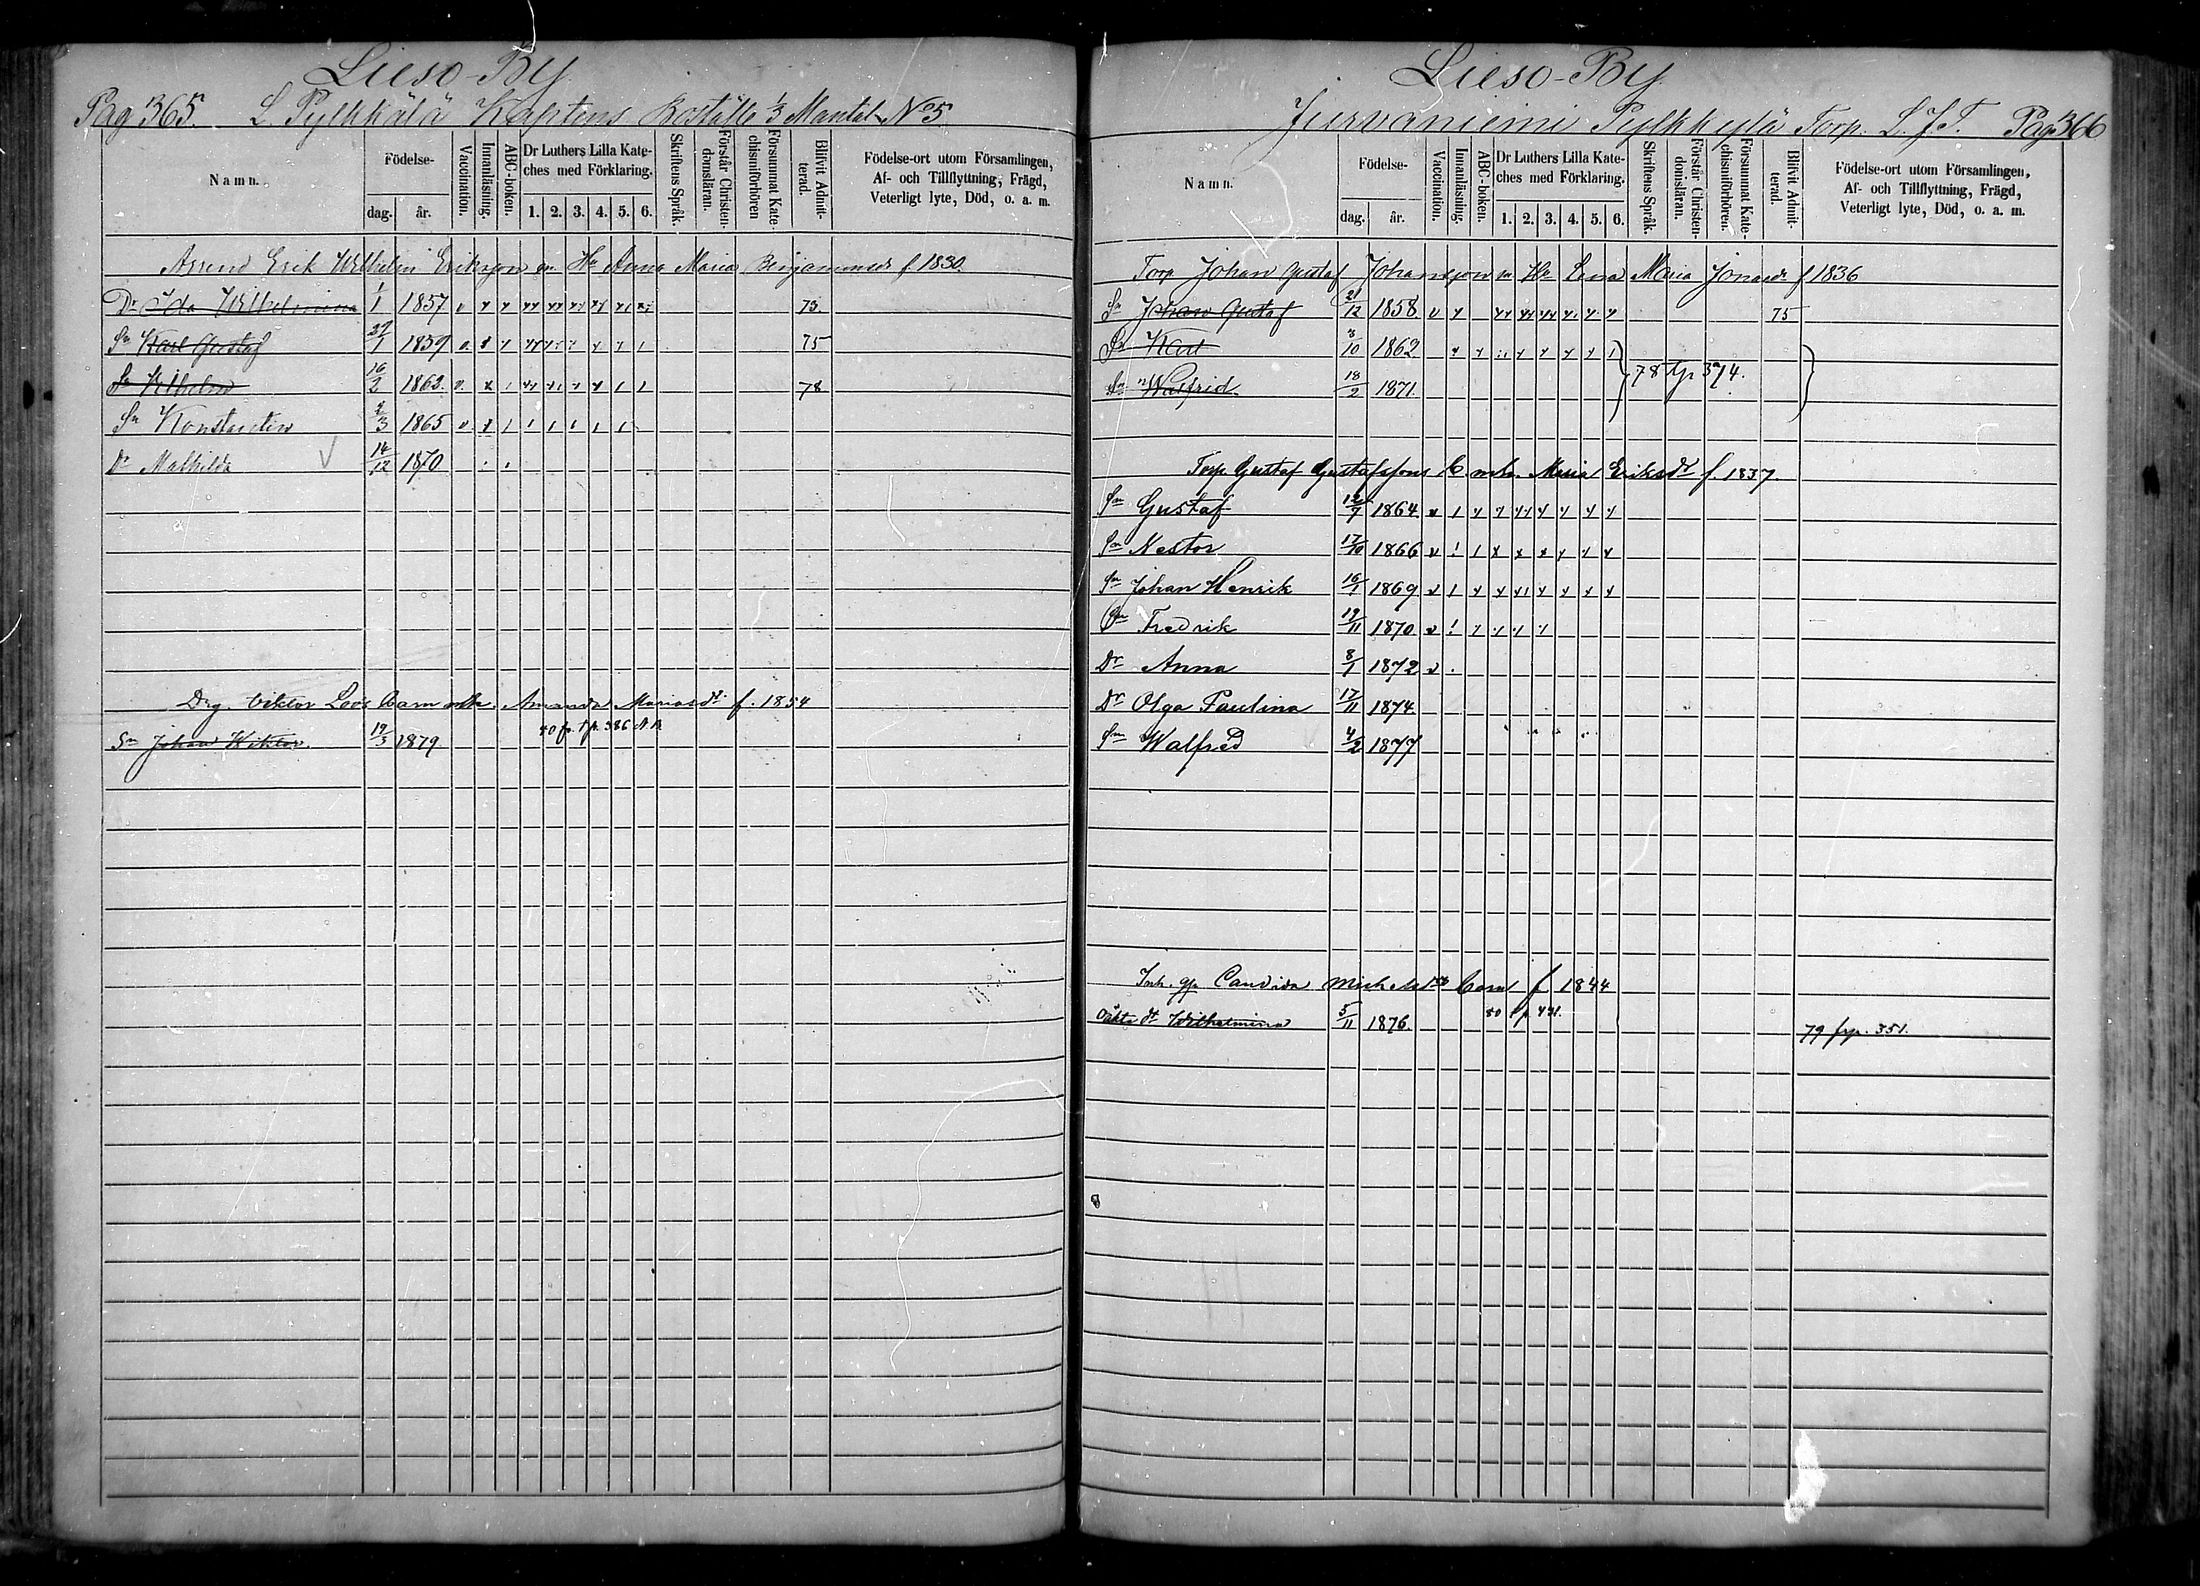 Lieso-By
Pag 365. L. Pylkkälä Kaptens Boställe 1/3 Mantal No 5
Namn.
Födelse-
dag. år.
Vaccination.
Innanläsning.
ABC-boken.
Dr Luthers Lilla Kate-
ches med Förklaring.
1. 2. 3. 4. 5. 6.
Skriftens Språk.
Förstår Christen-
domsläran.
Försummat Kate-
chismiförhören
Blifvit Admit-
terad.
Födelse-ort utom Församlingen,
Af- och Tillflyttning, Frägd,
Veterligt lyte, Död, o. a. m.
Arrend Erik Wilhelm Eriksson Hu Anna Maria Benjaminsdr f 1830.
Dr Ida Wilhelmina 1/1 1857 73.
Sn Karl Gustaf 27/1 1859 75
Sn Wilhelm 16/2 1862 78
Sn Konstantin 2/3 1865
Dr Mathilda 14/12 1870
Drg. Viktor Barn Amanda Mariasdr f. 1854
Sn Johan Wiktor. 19/3 1879 80 fr. t p. 386
Lieso-By
Jurvaniemi Pylkkylä Torp. L. J. T. Pag 366
Namn.
Födelse-
dag. år.
Vaccination.
Innanläsning.
ABC-boken.
Dr Luthers Lilla Kate-
ches med Förklaring.
1. 2. 3. 4. 5. 6.
Skriftens Språk.
Förstår Christen-
domisläran.
Försummat Kate-
chismiförhören.
Blifvit Admit-
terad.
Födelse-ort utom Församlingen,
Af- och Tillflyttning, Frägd,
Veterligt lyte, Död, o. a. m.
Torp Johan Gustaf Johansson Hu Lena Maria Jonasdr f 1836
Sn Johan Gustaf 21/12 1858 75
Sn Karl 3/10 1862
Sn Walfrid 18/2 1871. 78 t p 374.
Torp Gustaf Gustafssons B. Maria Eriksdr f. 1837.
Sn Gustaf 12/7 1864
Sn Nestor 17/10 1866
Sn Johan Henrik 16/1 1869
Sn Fredrik 19/11 1870
Dr Anna 8/1 1872
Dr Olga Paulina 17/11 1874
Sn Walfred 4/2 1877
Inh. qp Candida Michelsdrs Barn f 1844
oäkta dr Wilhelmina 5/11 1876. 80 t p 441. 79 frp. 351.